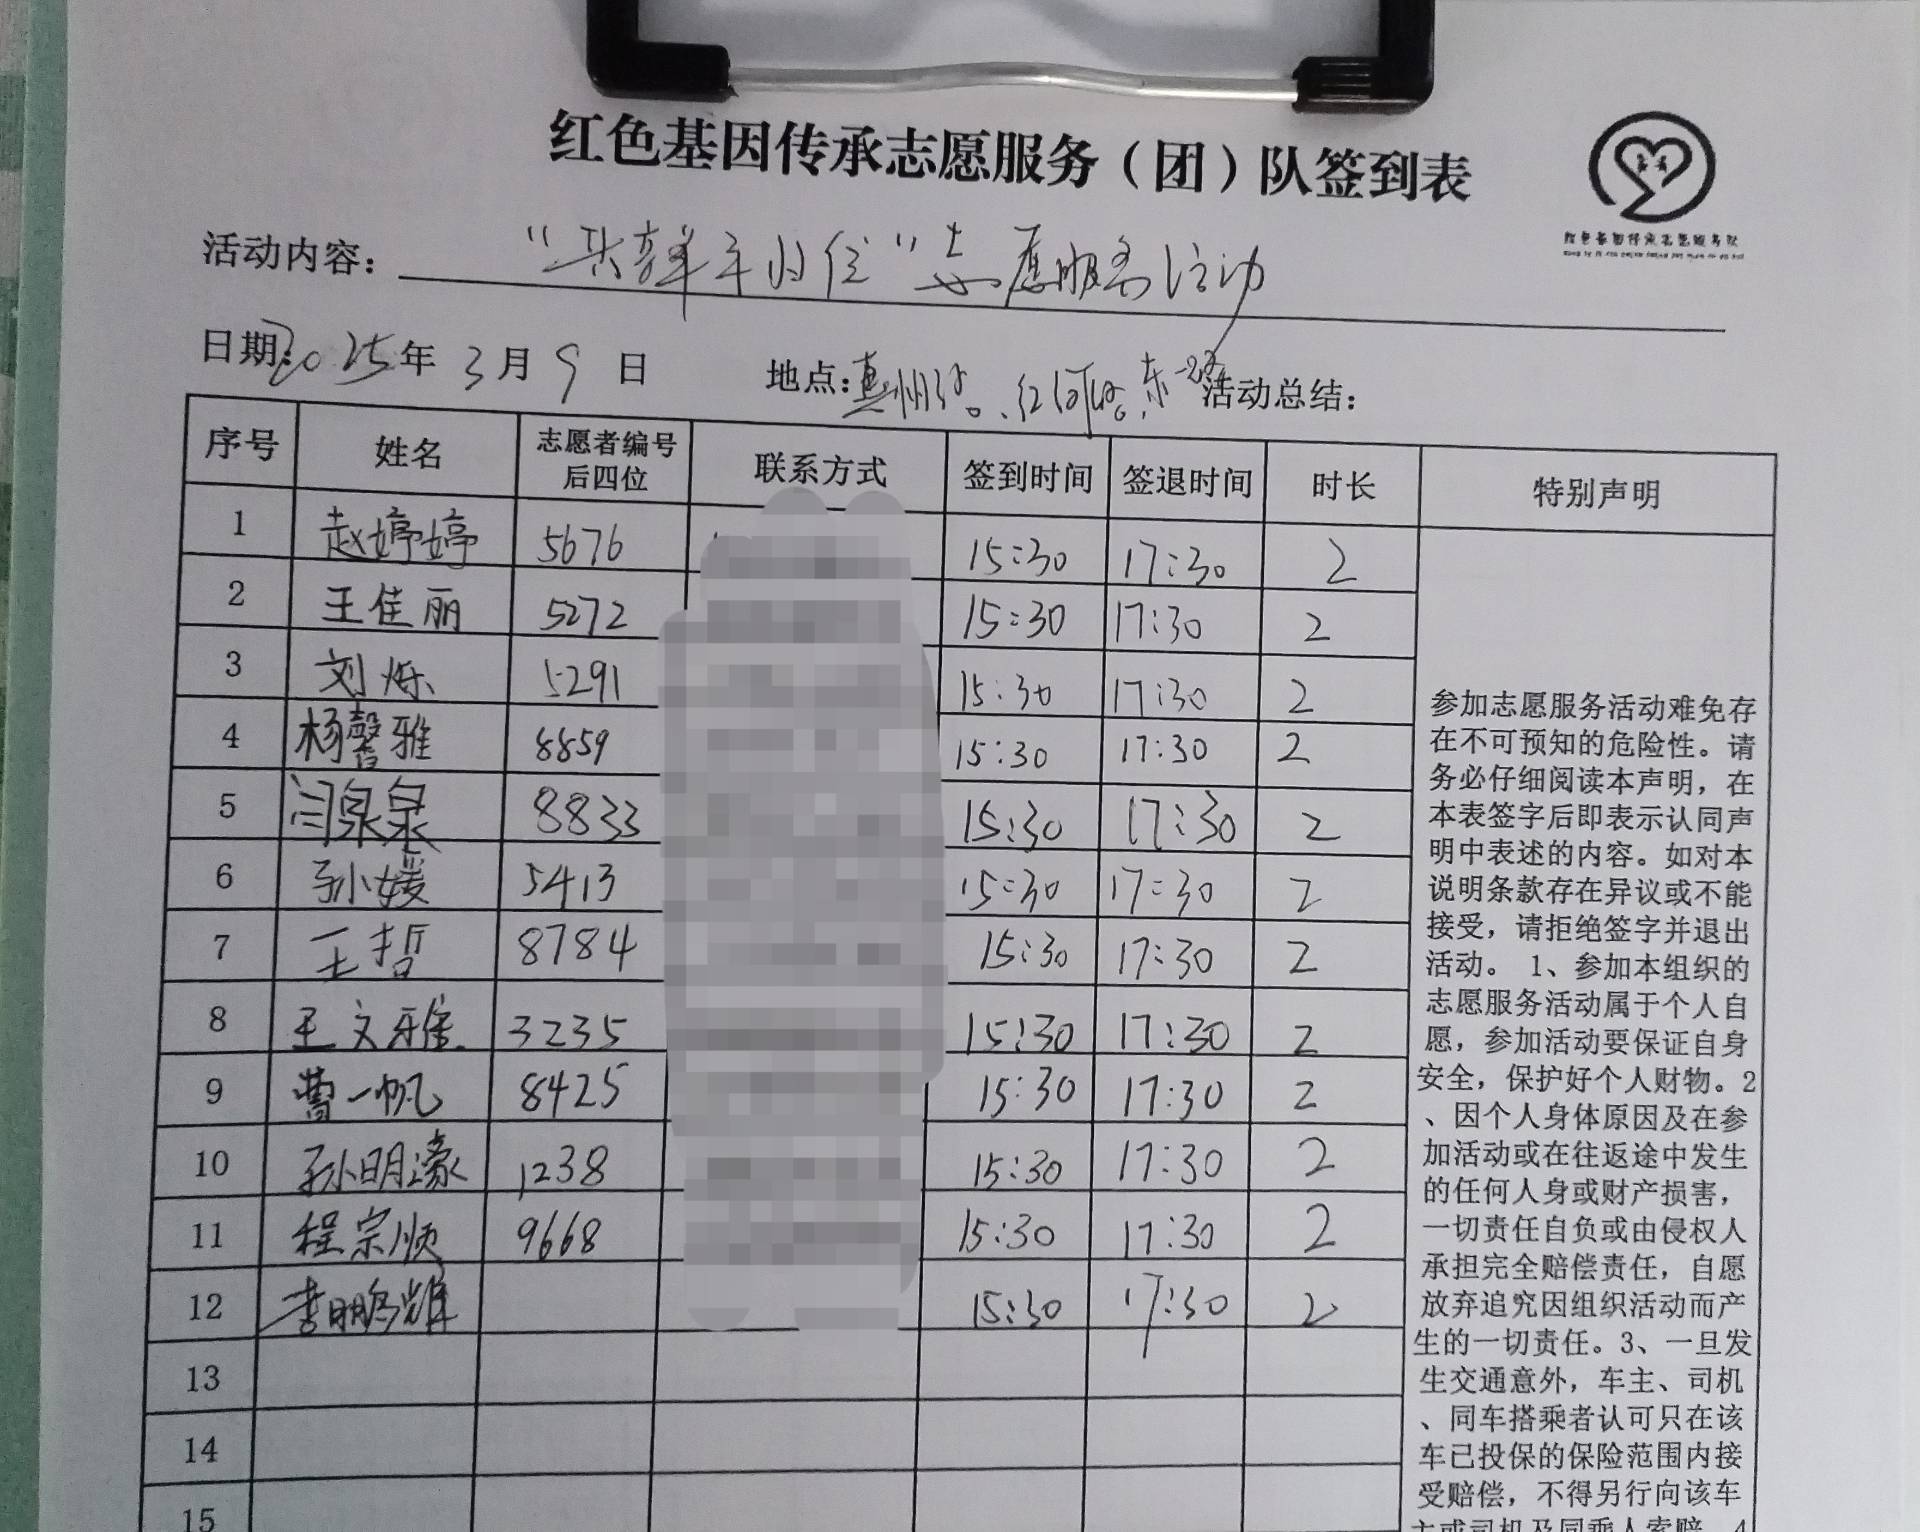 红色基因传承志愿服务（团）队签到表
红色基因传承志愿服务队
活动内容： “共享单车归位”志愿服务活动
日期：2025年3月9日 地点：惠州路、红河路、东一路 活动总结：
序号 姓名 志愿者编号后四位 联系方式 签到时间 签退时间 时长 特别声明
1 赵婷婷 5676 15:30 17:30 2
2 王佳丽 5272 15:30 17:30 2
3 刘烁 5291 15:30 17:30 2
4 杨馨雅 8859 15:30 17:30 2
5 闫泉泉 8833 15:30 17:30 2
6 孙媛 5413 15:30 17:30 2
7 王哲 8784 15:30 17:30 2
8 王文雅 3235 15:30 17:30 2
9 曹一帆 8425 15:30 17:30 2
10 孙明濠 1238 15:30 17:30 2
11 程宗顺 9668 15:30 17:30 2
12 李鹏辉 15:30 17:30 2
13
14
15
参加志愿服务活动难免存
在不可预知的危险性。请
务必仔细阅读本声明，在
本表签字后即表示认同声
明中表述的内容。如对本
说明条款存在异议或不能
接受，请拒绝签字并退出
活动。 1、参加本组织的
志愿服务活动属于个人自
愿，参加活动要保证自身
安全，保护好个人财物。2
、因个人身体原因及在参
加活动或在往返途中发生
的任何人身或财产损害，
一切责任自负或由侵权人
承担完全赔偿责任，自愿
放弃追究因组织活动而产
生的一切责任。3、一旦发
生交通意外，车主、司机
、同车搭乘者认可只在该
车已投保的保险范围内接
受赔偿，不得另行向该车
主或司机及同乘人索赔。4